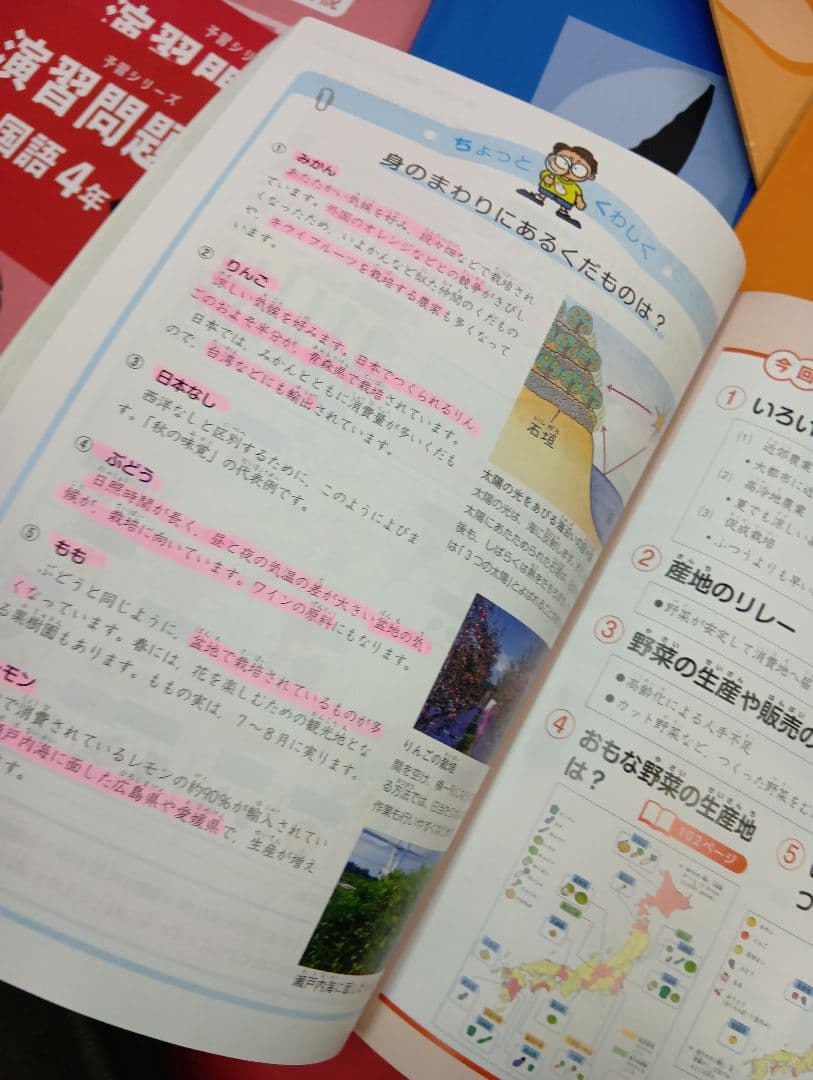 演習問
予習シリーズ
演習問題
国語4年
ちょっと
くわしく
身のまわりにあるくだものは？
① みかん
あたたかい気候を好み、段々畑などで栽培され
ています。外国のオレンジなどとの競争がきびし
くなったため、いよかんなど似た仲間のくだもの
や、キウイフルーツを栽培する農家も多くなって
います。
② りんご
涼しい気候を好みます。日本でつくられるりん
ごのおよそ半分が、青森県で栽培されています。
日本では、みかんとともに消費量が多いくだも
ので、台湾などにも輸出されています。
③ 日本なし
西洋なしと区別するために、このようによびま
す。「秋の味覚」の代表例です。
④ ぶどう
日照時間が長く、昼と夜の気温の差が大きい盆地の気
候が、栽培に向いています。ワインの原料にもなります。
⑤ もも
ぶどうと同じように、盆地で栽培されているものが多
くなっています。春には、花を楽しむための観光地とな
る果樹園もあります。ももの実は、7〜8月に実ります。
モン
で消費されているレモンの約90%が輸入されてい
瀬戸内海に面した広島県や愛媛県で、生産が増え
す。
石垣
太陽の光をあびる
太陽の光は、海に反射します。
太陽にあたためられた石垣は、
後も、しばらくは熱を
は「3つの太陽」とよばれる
りんごの栽培
間を空け、
る方法では、
作業も行いやすく
瀬戸内海に面し
今回
① いろい
(1) 近郊農業
・大都市に近
(2) 高冷地農業
・夏でも涼しい
(3) 促成栽培
・ふつうよりも早い
② 産地のリレー
●野菜が安定して消費地へ届
③ 野菜の生産や販売の
●高齢化による人手不足
●カット野菜など、つくった野菜をむ
④ おもな野菜の生産地
は？
102ページ
⑤
つ